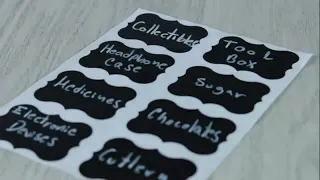 Collectibles
Tool
Box
Headphone
Case
Sugar
Medicines
Chocolates
Electronic
Devises
Cutlery